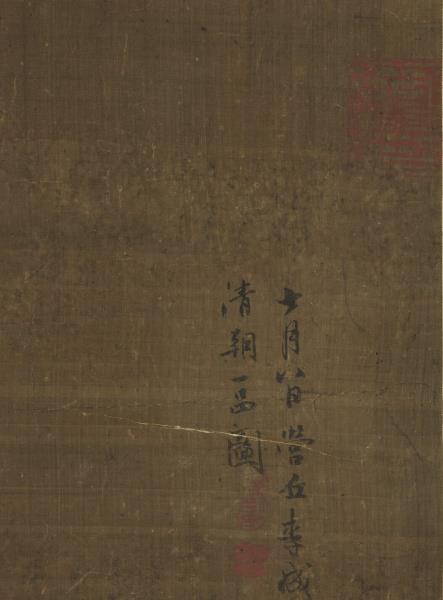 七月八日營丘李成
清朝一品圖